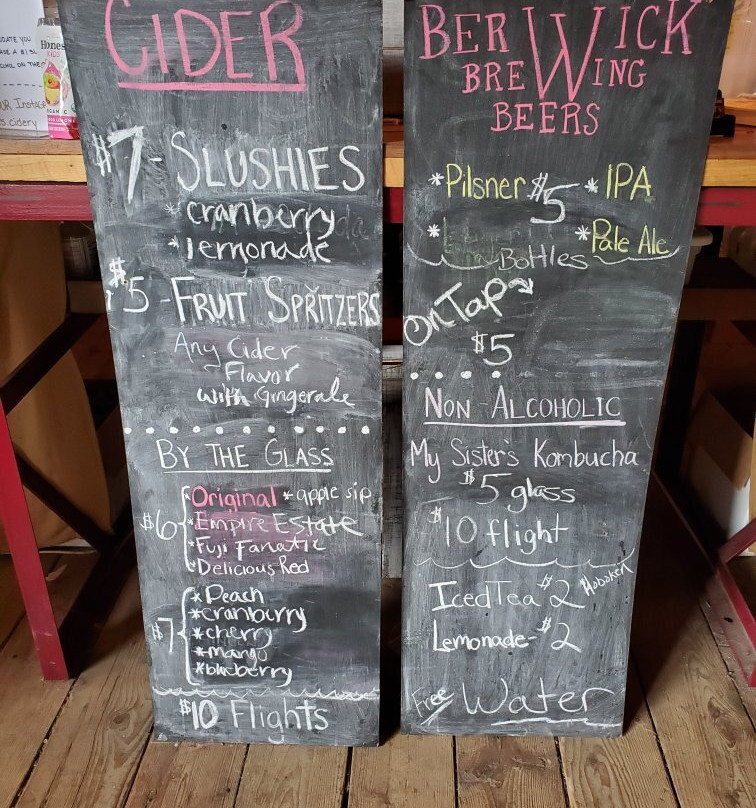 DATE YOU
ASE A BISL
COHOL ON THE
UR Insta
s.cidery
Hones
KIDS
CIDER
$7- SLUSHIES
* cranberry
* lemonade
$5 - FRUIT SPRITZERS
Any Cider
Flavor
with Gingerale
BY THE GLASS
$6
*Original *apple sip
*Empire Estate
*Fuji Fanatic
*Delicious Red
$7
*Peach
*cranburry
*cherry
*mango
*blueberry
$10 Flights
BERWICK
BREWING
BEERS
*Pilsner $5 *IPA
* *Pale Ale
Bottles
On Tap
$5
NON-ALCOHOLIC
My Sister's Kombucha
$5 glass
$10 flight
Iced Tea $2 Hoboken
Lemonade-$2
Free Water